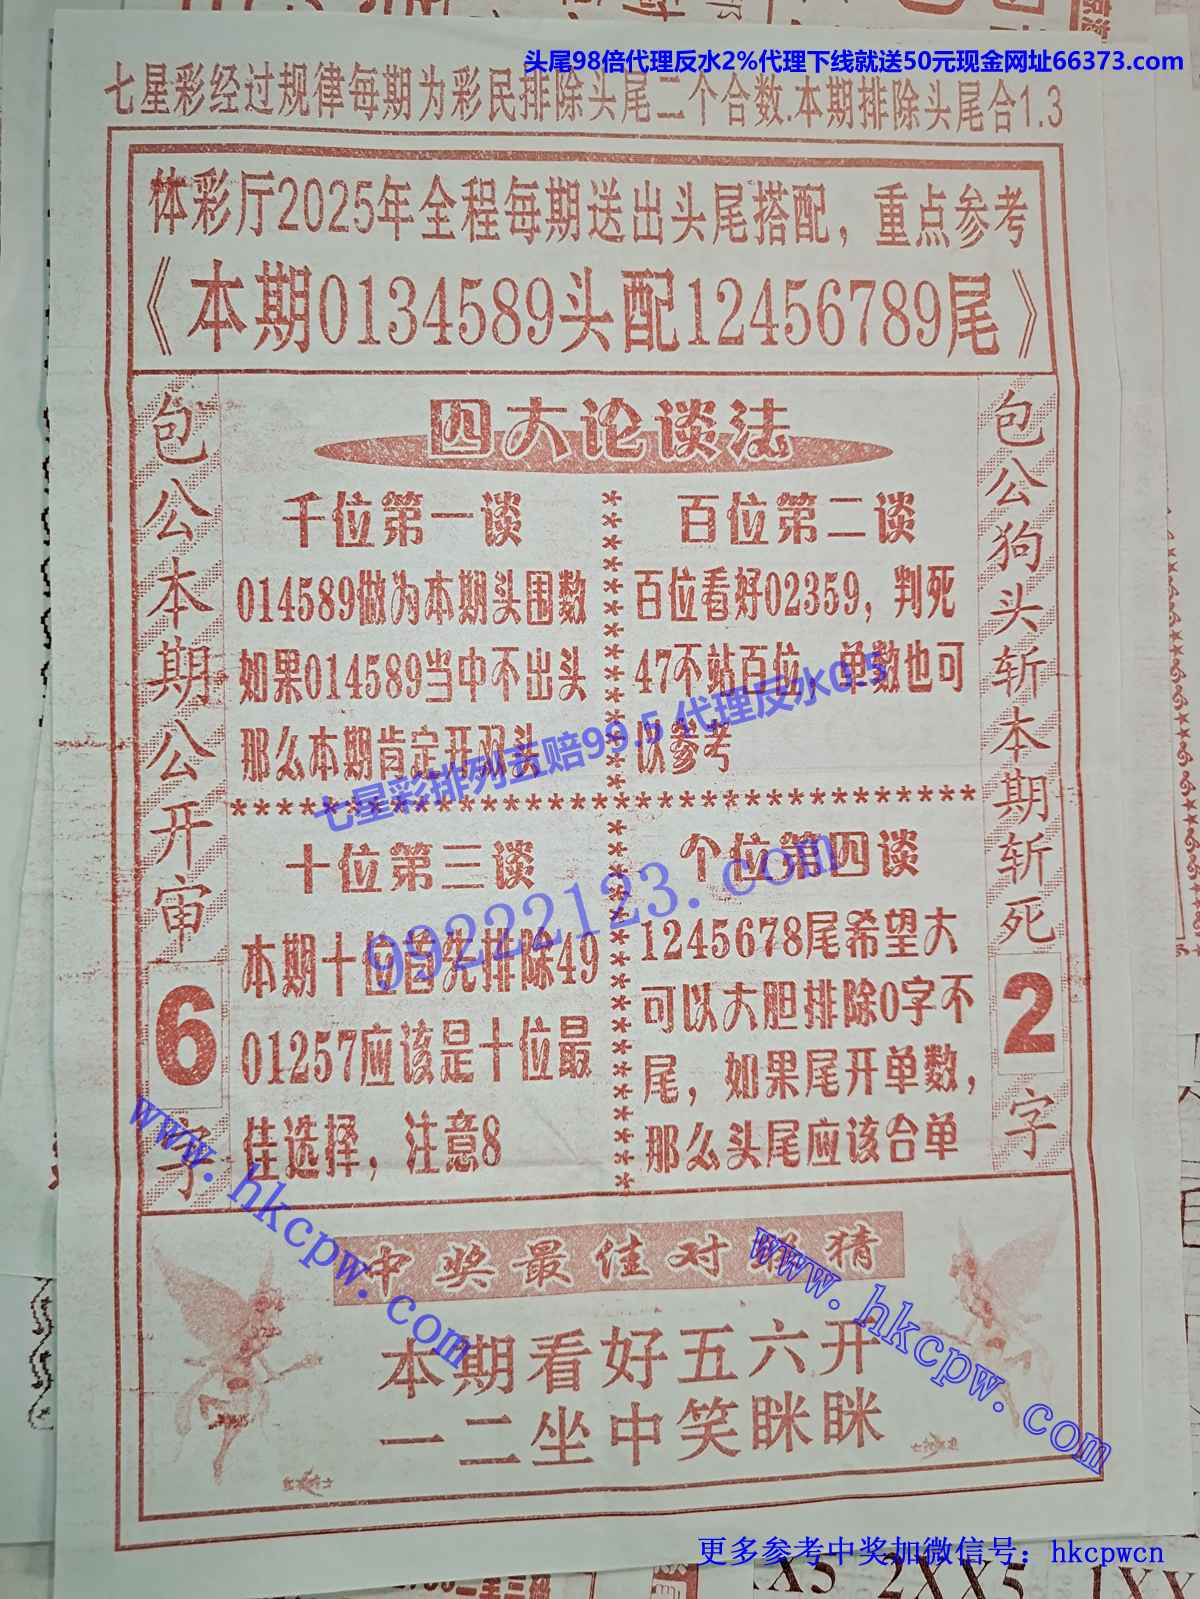 头尾98倍代理反水2%代理下线就送50元现金网址66373.com
七星彩经过规律每期为彩民排除头尾二个合数.本期排除头尾合1.3
体彩厅2025年全程每期送出头尾搭配，重点参考
《本期0134589头配12456789尾》
包公本期公开审6字
四大论谈法
千位第一谈
014589做为本期头围数
如果014589当中不出头
那么本期肯定开双头
百位第二谈
百位看好02359，判死
47不站百位，单数也可
以参考
七星彩排列五赔99.5 代理反水0.5
99222123.com
十位第三谈
本期十位首先排除49
01257应该是十位最
佳选择，注意8
个位第四谈
1245678尾希望大
可以大胆排除0字不
尾，如果尾开单数，
那么头尾应该合单
包公狗头斩本期斩死2字
www.hkcpw.com
www.hkcpw.com
中奖最佳对联猜
本期看好五六开
一二坐中笑眯眯
更多参考中奖加微信号：hkcpwcn
1X5 2XX5 1XX